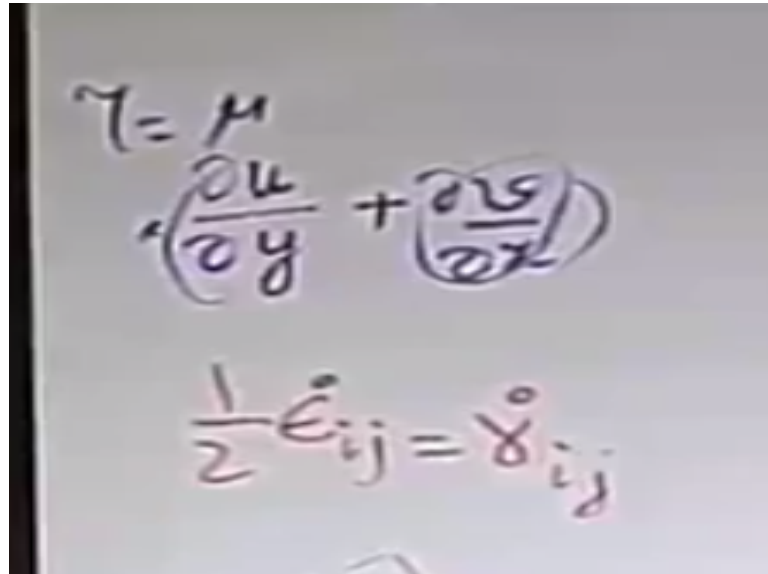 τ = μ
(∂u/∂y + (∂v/∂x))
1/2 ε̇ij = γ̇ij